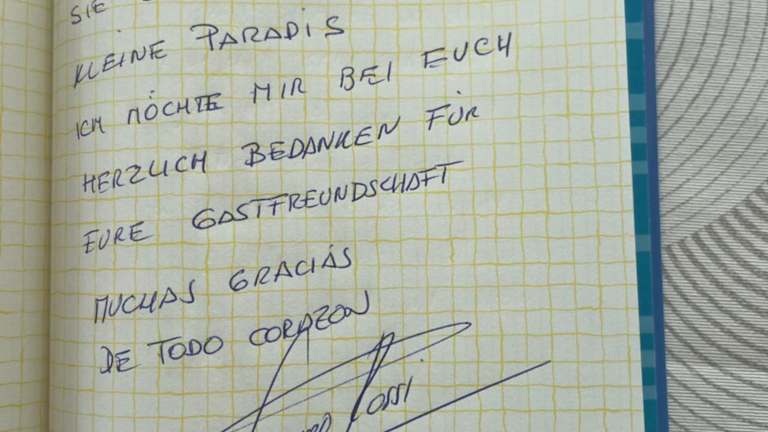 SIE
KLEINE PARADIS
ICH MÖCHTE MIR BEI EUCH
HERZLICH BEDANKEN FÜR
EURE GASTFREUNDSCHAFT
MUCHAS GRACIAS
DE TODO CORAZON